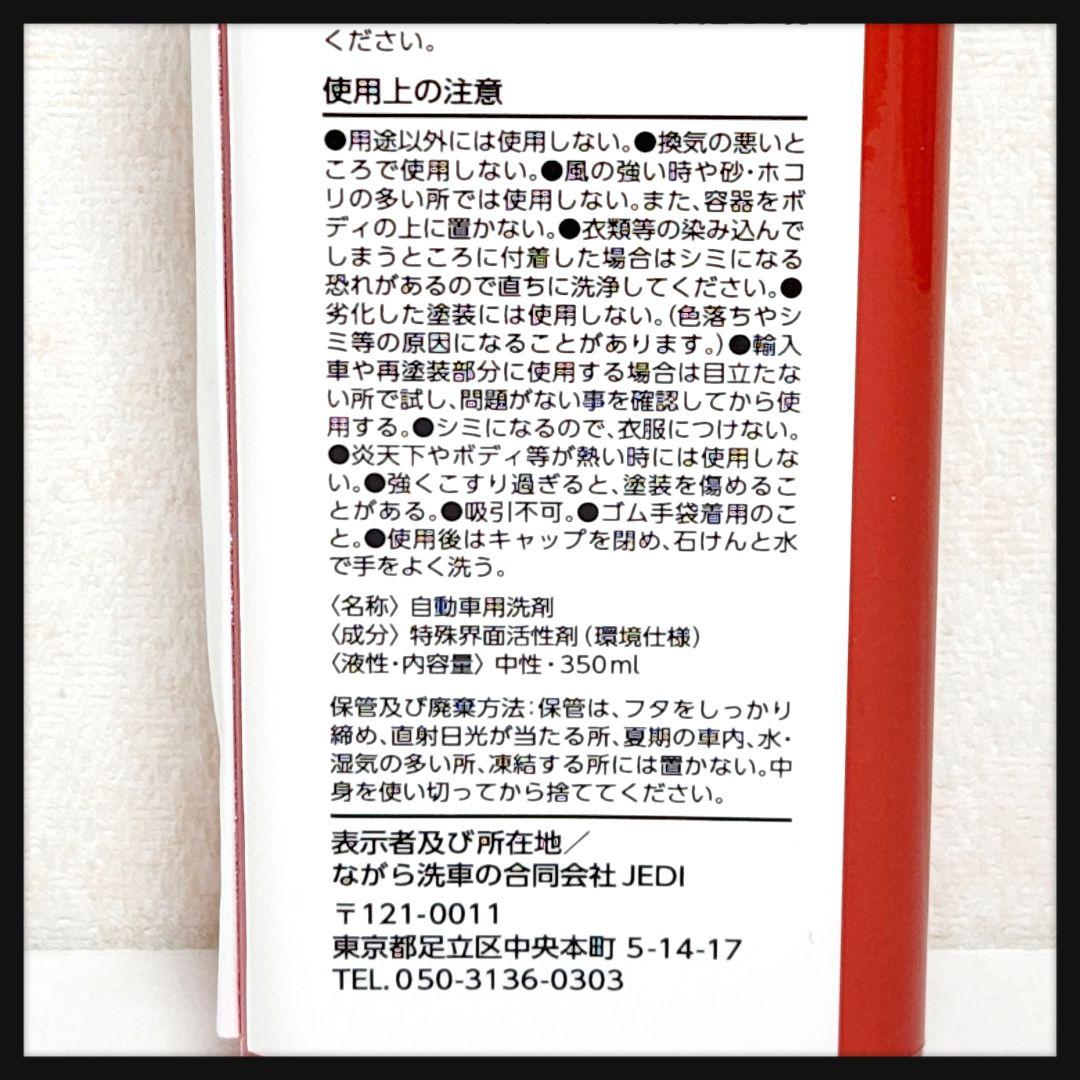 ください。
使用上の注意
●用途以外には使用しない。●換気の悪いと
ころで使用しない。●風の強い時や砂・ホコ
リの多い所では使用しない。また、容器をボ
ディの上に置かない。●衣類等の染み込んで
しまうところに付着した場合はシミになる
恐れがあるので直ちに洗浄してください。●
劣化した塗装には使用しない。(色落ちやシ
ミ等の原因になることがあります。)●輸入
車や再塗装部分に使用する場合は目立たな
い所で試し、問題がない事を確認してから使
用する。●シミになるので、衣服につけない。
●炎天下やボディ等が熱い時には使用しな
い。●強くこすり過ぎると、塗装を傷めるこ
とがある。●吸引不可。●ゴム手袋着用のこ
と。●使用後はキャップを閉め、石けんと水
で手をよく洗う。
〈名称〉 自動車用洗剤
〈成分〉 特殊界面活性剤(環境仕様)
〈液性・内容量〉 中性・350ml
保管及び廃棄方法:保管は、フタをしっかり
締め、直射日光が当たる所、夏期の車内、水・
湿気の多い所、凍結する所には置かない。中
身を使い切ってから捨ててください。
表示者及び所在地/
ながら洗車の合同会社 JEDI
〒121-0011
東京都足立区中央本町 5-14-17
TEL.050-3136-0303